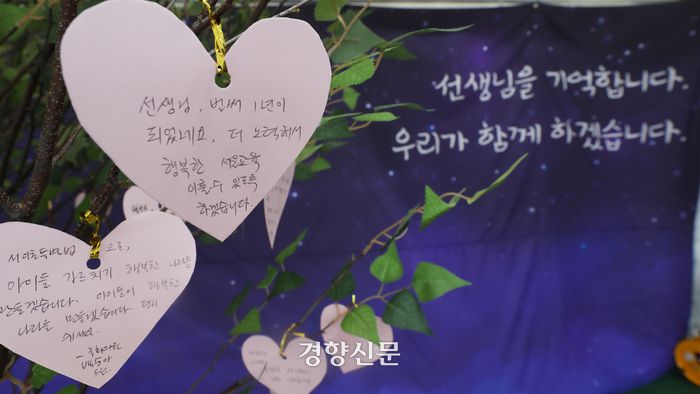 선생님, 벌써 1년이
되었네요. 더 노력해서
행복한 서울교육
이룰 수 있도록
하겠습니다.
선생님을 기억합니다.
우리가 함께 하겠습니다.
서이초특별법 으로,
아이들 가르치기 행복한 나라를
만들겠습니다. 아이들이 행복한
나라를 만들겠습니다. 편히
쉬세요.
경향신문